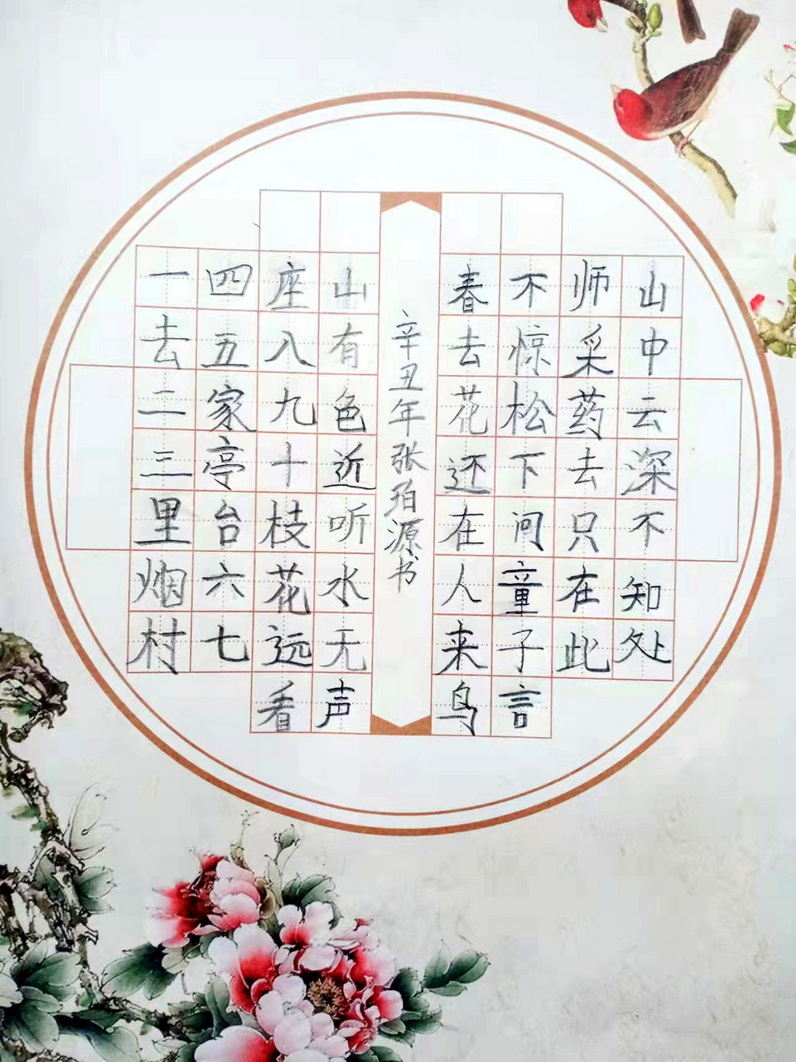 一去二三里烟村
四五家亭台六七
座八九十枝花远看
山有色近听水无声
春去花还在人来鸟
不惊松下问童子言
师采药去只在此
山中云深不知处
辛丑年张珀源书